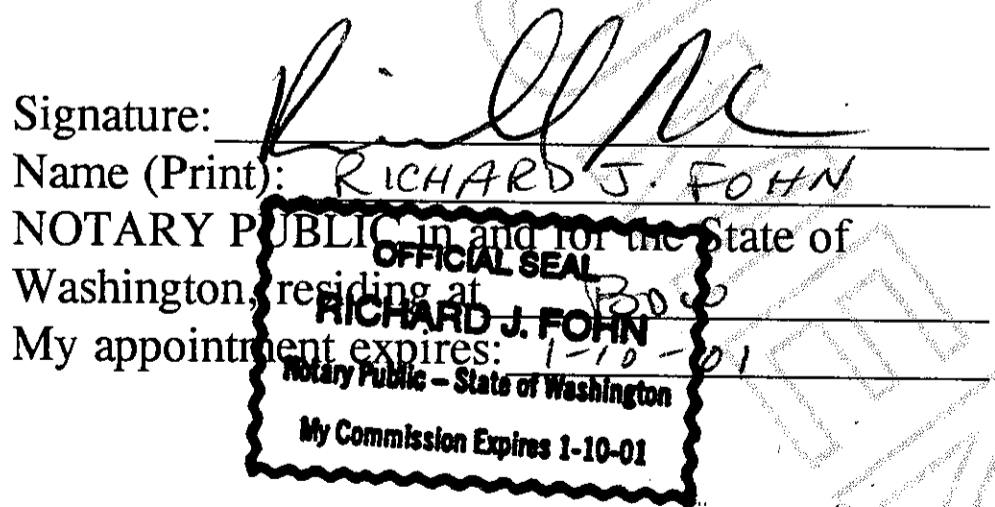 Signature:
Name (Print): RICHARD J. FOHN
NOTARY PUBLIC in and for the State of
Washington, residing at Bow
My appointment expires: 1-10-01
OFFICIAL SEAL
RICHARD J. FOHN
Notary Public – State of Washington
My Commission Expires 1-10-01